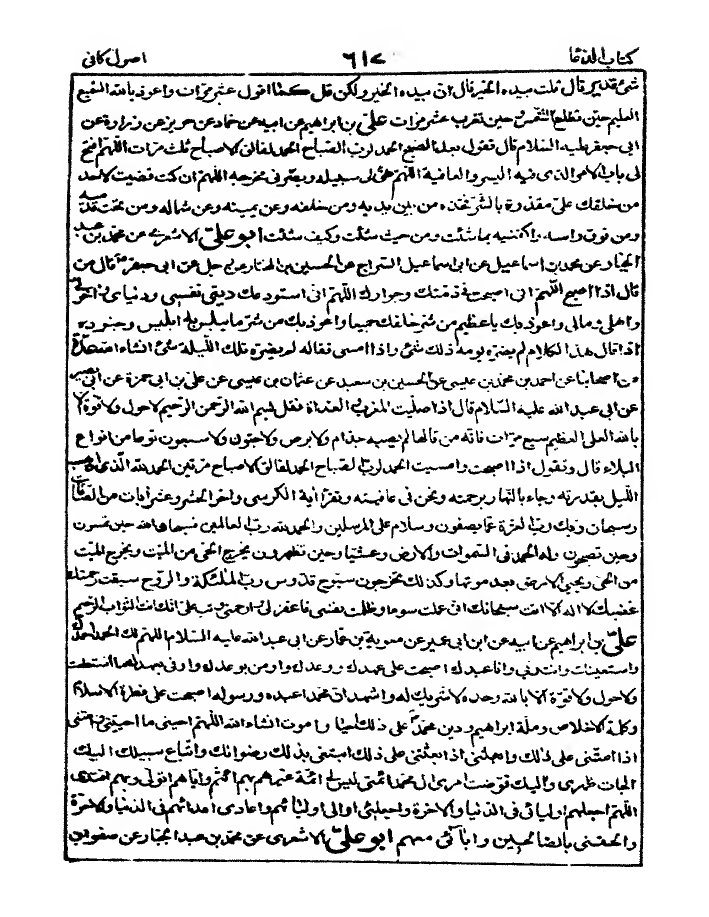 كتاب الدعا ٦١٧ اصول كافى
شئ قدير قال قلت بيده الخير قال ان بيده الخير ولكن قل كما اقول عشر مرات واعوذ بالله السميع
العليم حين تطلع الشمس وحين تغرب عشر مرات على بن ابراهيم عن ابيه عن حماد عن حريز عن زرارة عن
ابى جعفر عليه السلام قال تقول بعد الصبح الحمد لرب الصباح الحمد لفالق الاصباح ثلث مرات اللهم افتح
لى باب الامر الذى فيه اليسر والعافية اللهم هيئ لى سبيله وبصرنى مخرجه اللهم ان كنت قضيت لاحد
من خلقك على مقدرة بالشر فخذه من بين يديه ومن خلفه وعن يمينه وعن شماله ومن تحت قدميه
ومن فوق راسه واكفنيه بما شئت ومن حيث شئت وكيف شئت ابو على الاشعرى عن محمد بن عبد
الجبار عن محمد بن اسماعيل عن ابى اسماعيل السراج عن الحسين بن المختار عن رجل عن ابى جعفر قال من
قال اذا اصبح اللهم انى اصبحت فى ذمتك وجوارك اللهم انى استودعك دينى ونفسى ودنياى واخرتى
واهلى ومالى واعوذ بك يا عظيم من شر خلقك جميعا واعوذ بك من شر ما يبلس به ابليس وجنوده
اذا قال هذا الكلام لم يضره يومه ذلك شئ واذا امسى فقاله لم يضره تلك الليلة شئ انشاء الله عدة
من اصحابنا عن احمد بن محمد بن عيسى عن الحسين بن سعيد عن عثمان بن عيسى عن على بن ابى حمزة عن ابى بصير
عن ابى عبد الله عليه السلام قال اذا صليت المغرب والغداة فقل بسم الله الرحمن الرحيم لا حول ولا قوة الا
بالله العلى العظيم سبع مرات فانه من قالها لم يصبه جذام ولا برص ولا جنون ولا سبعون نوعا من انواع
البلاء قال وتقول اذا اصبحت وامسيت الحمد لرب الصباح الحمد لفالق الاصباح مرتين الحمد لله الذى اذهب
الليل بقدرته وجاء بالنهار برحمته ونحن فى عافيته وتقرأ اية الكرسى واخر الحشر وعشر ايات من الصافات
وسبحان ربك رب العزة عما يصفون وسلام على المرسلين والحمد لله رب العالمين فسبحان الله حين تمسون
وحين تصبحون وله الحمد فى السموات والارض وعشيا وحين تظهرون يخرج الحى من الميت ويخرج الميت
من الحى ويحيى الارض بعد موتها وكذلك تخرجون سبوح قدوس رب الملئكة والروح سبقت رحمتك
غضبك لا اله الا انت سبحانك انى عملت سوءا وظلمت نفسى فاغفر لى وارحمنى وتب على انك انت التواب الرحيم
على بن ابراهيم عن ابيه عن ابن ابى عمير عن معوية بن عمار عن ابى عبد الله عليه السلام اللهم لك الحمد احمدك
واستعينك وانت ربى وانا عبدك اصبحت على عهدك ووعدك واومن بوعدك واوفى بعهدك ما استطعت
ولا حول ولا قوة الا بالله وحده لا شريك له واشهد ان محمدا عبده ورسوله اصبحت على فطرة الاسلام
وكلمة الاخلاص وملة ابراهيم ودين محمد على ذلك احيا واموت انشاء الله اللهم احينى ما احييتنى وامتنى
اذا امتنى على ذلك وابعثنى اذا بعثتنى على ذلك ابتغى بذلك رضوانك واتباع سبيلك اليك
الجات ظهرى واليك فوضت امرى ال محمد ائمتى ليس لى ائمة غيرهم بهم ائتم واياهم اتولى وبهم اقتدى
اللهم اجعلهم اوليائى فى الدنيا والاخرة واجعلنى اوالى اوليائهم واعادى اعدائهم فى الدنيا والاخرة
والحقنى بالصالحين وابائى معهم ابو على الاشعرى عن محمد بن عبد الجبار عن صفوان